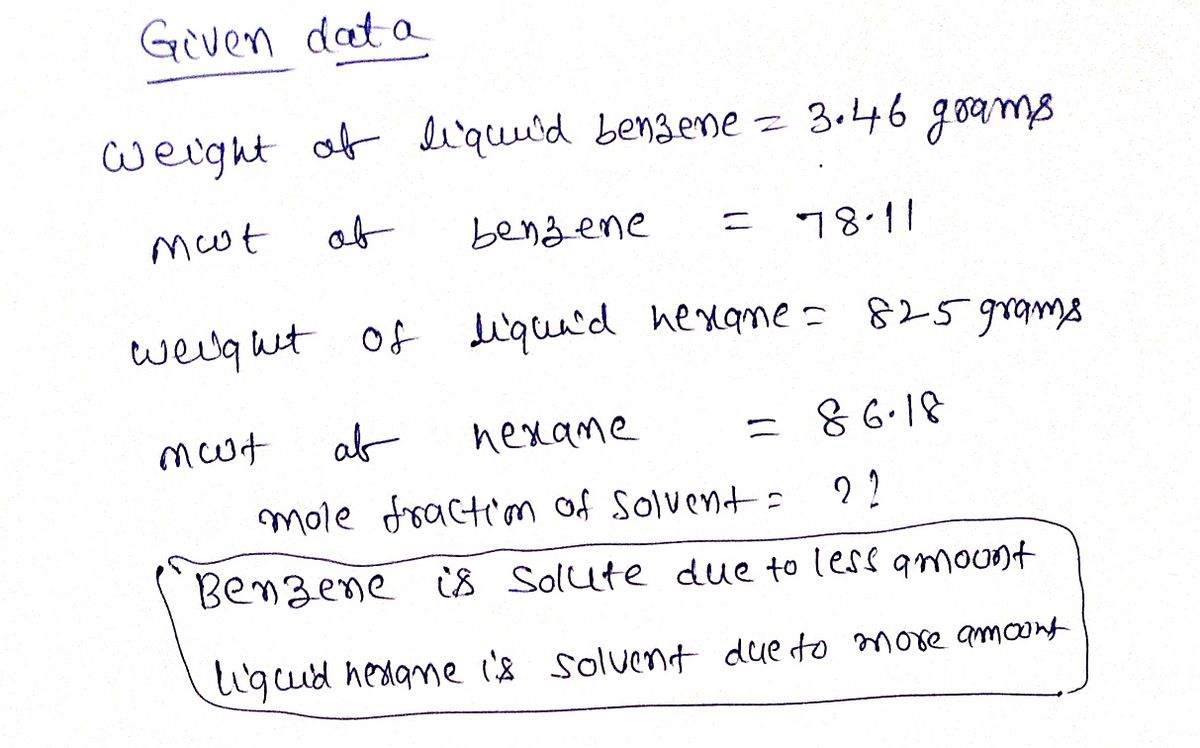 Given data
weight of liquid benzene = 3.46 grams
mwt of benzene = 78.11
weight of liquid hexane = 825 grams
mwt of hexane = 86.18
mole fraction of solvent = ??
Benzene is solute due to less amount
liquid hexane is solvent due to more amount